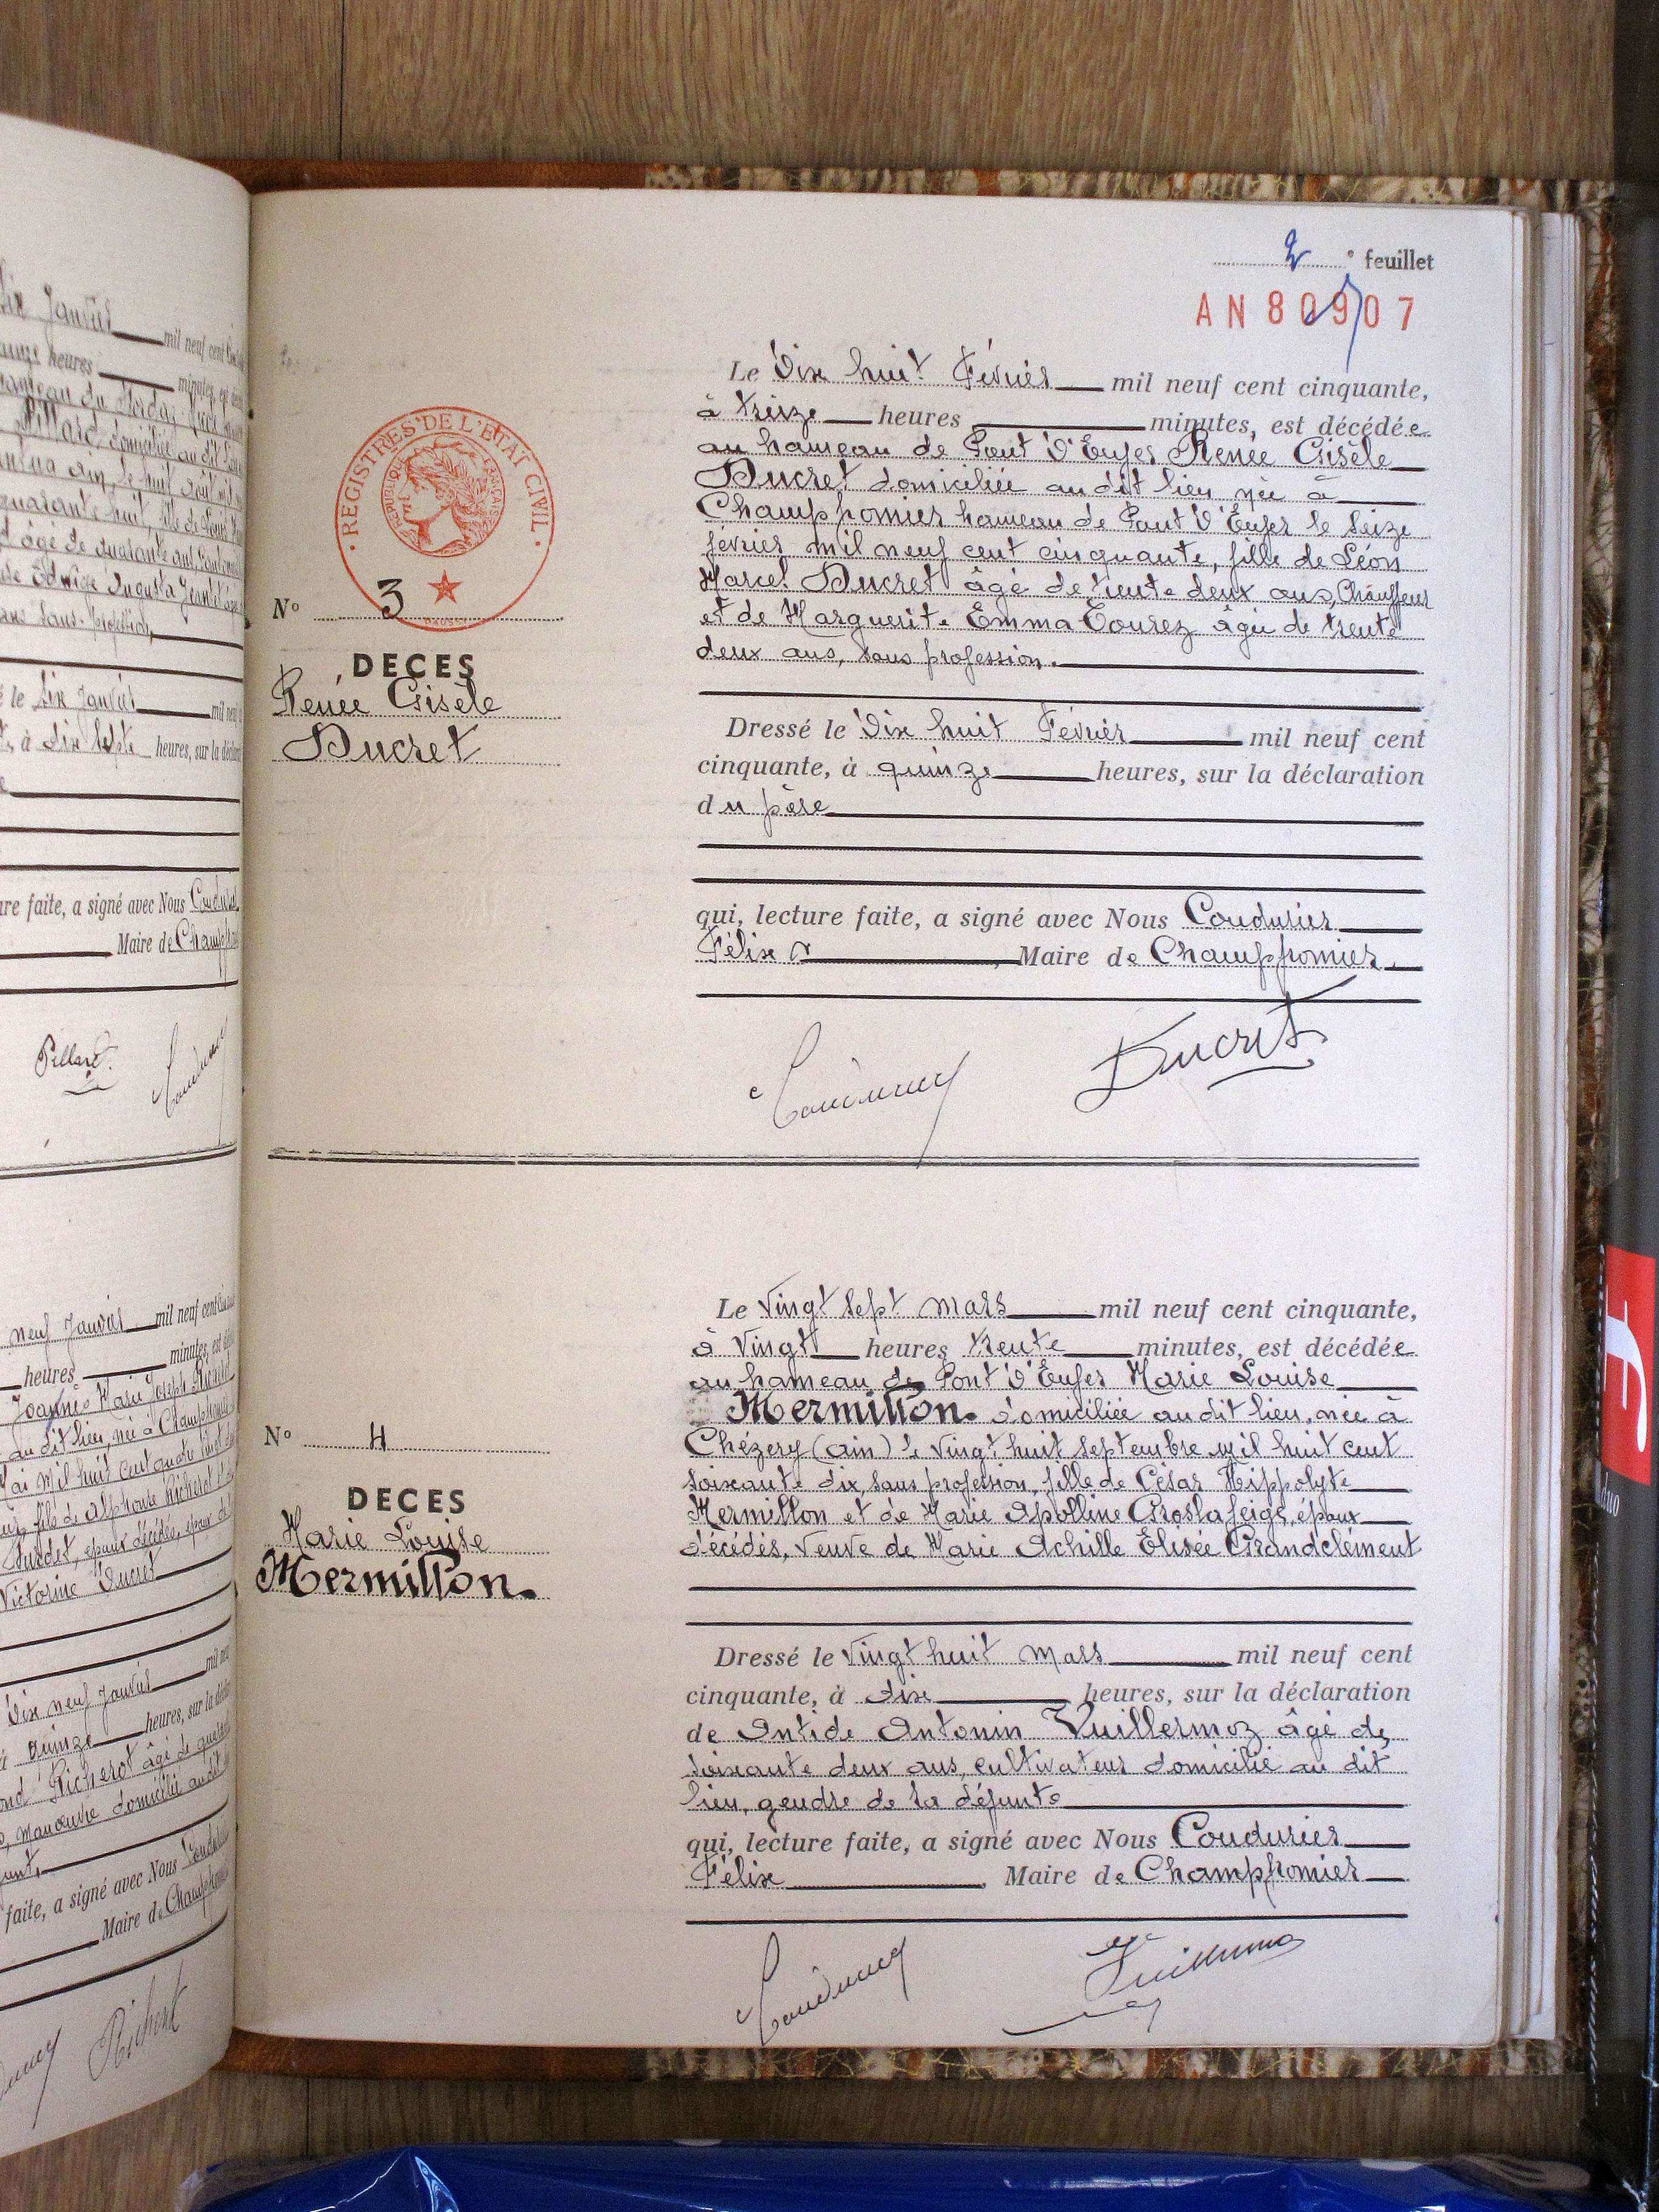 six Janvier mil neuf cent
heures minutes, est
Pillard, domiciliée au dit
le huit août mil
quarante huit, fille de Louis
âgé de quarante ans,
Augusta
sans profession,
le six Janvier mil
à dix sept heures, sur la
faite, a signé avec Nous
Maire de
Pillard
neuf Janvier mil neuf cent
heures minutes, est
Joannès Marie Joseph
au dit lieu, née à
Mai mil huit cent quatre vingt
fils de Alphonse Richerot
époux décédés, époux de
Victorine Ducret
Dix neuf Janvier mil
à quinze heures, sur la
Richerot âgé de
manœuvre domicilié au dit
faite, a signé avec Nous
Maire de
2 e feuillet
AN 80907
REGISTRES DE L'ETAT CIVIL
REPUBLIQUE FRANÇAISE
N° 3
DECES
Renée Gisèle
Ducret
Le Dix huit Février mil neuf cent cinquante,
à treize heures minutes, est décédée
au hameau de Pont D'Enfer Renée Gisèle
Ducret domiciliée au dit lieu née à
Champfromier hameau de Pont D'Enfer le seize
février mil neuf cent cinquante, fille de Léon
Marcel Ducret âgé de trente deux ans, Chauffeur
et de Marguerite Emma Tournez âgée de trente
deux ans, sans profession.
Dressé le Dix huit Février mil neuf cent
cinquante, à quinze heures, sur la déclaration
du père
qui, lecture faite, a signé avec Nous Coudurier
Félix, Maire de Champfromier.
Ducret
N° 4
DECES
Marie Louise
Mermillon.
Le Vingt sept mars mil neuf cent cinquante,
à Vingt heures trente minutes, est décédée
au hameau de Pont D'Enfer Marie Louise
Mermillon. domiciliée au dit lieu, née à
Chézery (ain) le vingt huit septembre mil huit cent
soixante dix, sans profession, fille de César Hippolyte
Mermillon et de Marie Apolline Groslafeige, époux
décédés, Veuve de Marie Achille Elisée Grandclément
Dressé le Vingt huit mars mil neuf cent
cinquante, à dix heures, sur la déclaration
de Antide Antonin Vuillermoz âgé de
soixante deux ans, cultivateur domicilié au dit
lieu, gendre de la défunte
qui, lecture faite, a signé avec Nous Coudurier
Félix, Maire de Champfromier